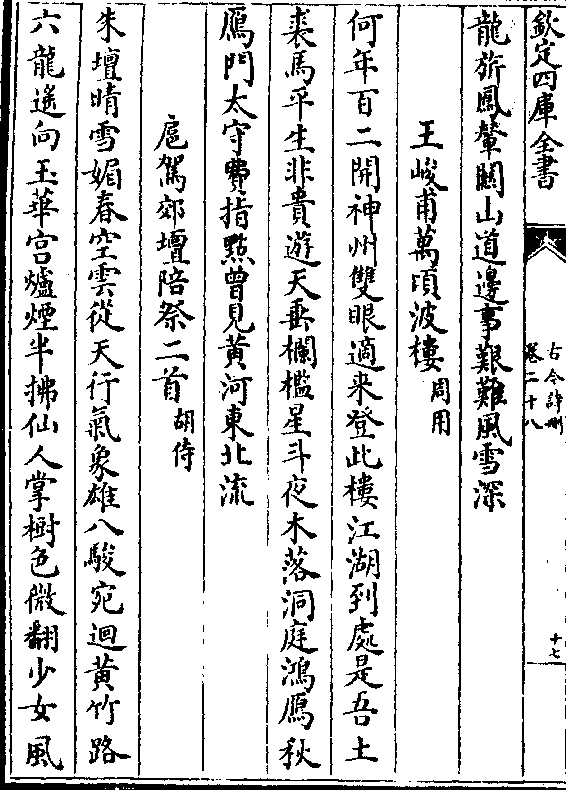 欽定四庫全書
古今詩刪
卷二十八
十七
龍旂鳳輦關山道邊事艱難風雪深
王峻甫萬頃波樓周用
何年百二開神州雙眼適來登此樓江湖到處是吾土
裘馬平生非貴遊天垂欄檻星斗夜木落洞庭鴻鴈秋
鴈門太守費指點曾見黃河東北流
扈駕郊壇陪祭二首胡侍
朱壇晴雪媚春空雲從天行氣象雄八駿宛迴黃竹路
六龍遙向玉華宮爐煙半拂仙人掌樹色微翻少女風